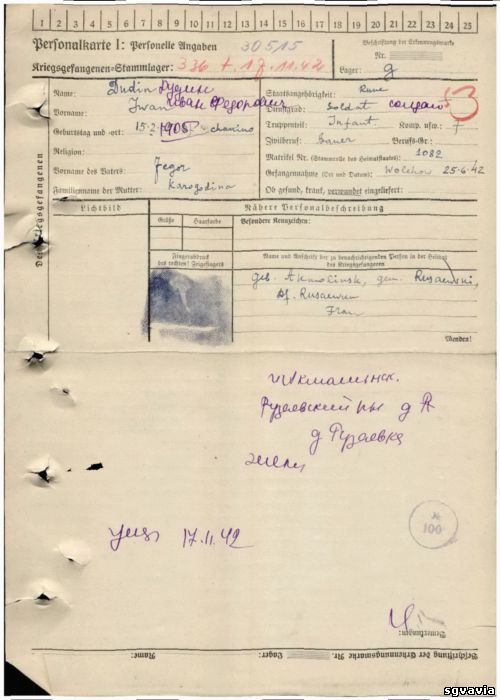 1 2 3 4 5 6 7 8 9 10 11 12 13 14 15 16 17 18 19 20 21 22 23 24 25
Personalkarte I: Personelle Angaben 30515
Kriegsgefangenen-Stammlager: 336 † 17.11.42
Beschriftung der Erkennungsmarke
Nr.
Lager:
Des Kriegsgefangenen
Name: Dudin Дудин
Vorname: Iwan Иван Федорович
Geburtstag und -ort: 15.2.1905
Religion:
Vorname des Vaters: Fegor
Familienname der Mutter: Karogodina
Staatsangehörigkeit: Russe
Dienstgrad: Soldat солдат
Truppenteil: Infant. Komp. usw.: 7
Zivilberuf: Bauer Berufs-Gr.:
Matrikel Nr. (Stammrolle des Heimatstaates): 1082
Gefangennahme (Ort und Datum): Wolchow 25.6.42
Ob gesund, krank, verwundet eingeliefert:
Lichtbild
Nähere Personalbeschreibung
Größe
Haarfarbe
Besondere Kennzeichen:
Fingerabdruck
des rechten! Zeigefingers
Name und Anschrift der zu benachrichtigenden Person in der Heimat
des Kriegsgefangenen
geb. Akmolinsk, gem. Rusaewski,
Df. Rusaewka
Frau
Wenden!
Рузаевский р-н
д Рузаевка
жена
17.11.42
№
100
Bemerkungen:
Beschriftung der Erkennungsmarke Nr.
Lager:
Name:
sgvavia